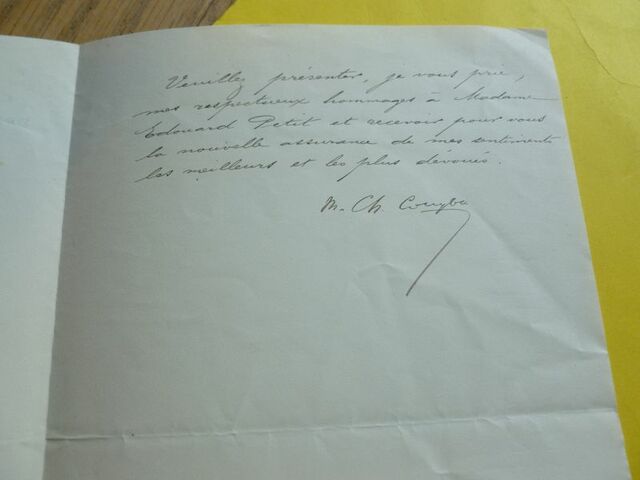 Veuillez présenter, je vous prie,
mes respectueux hommages à Madame
Edouard Petit et recevoir pour vous
la nouvelle assurance de mes sentiments
les meilleurs et les plus dévoués.
M. Ch. Couyba